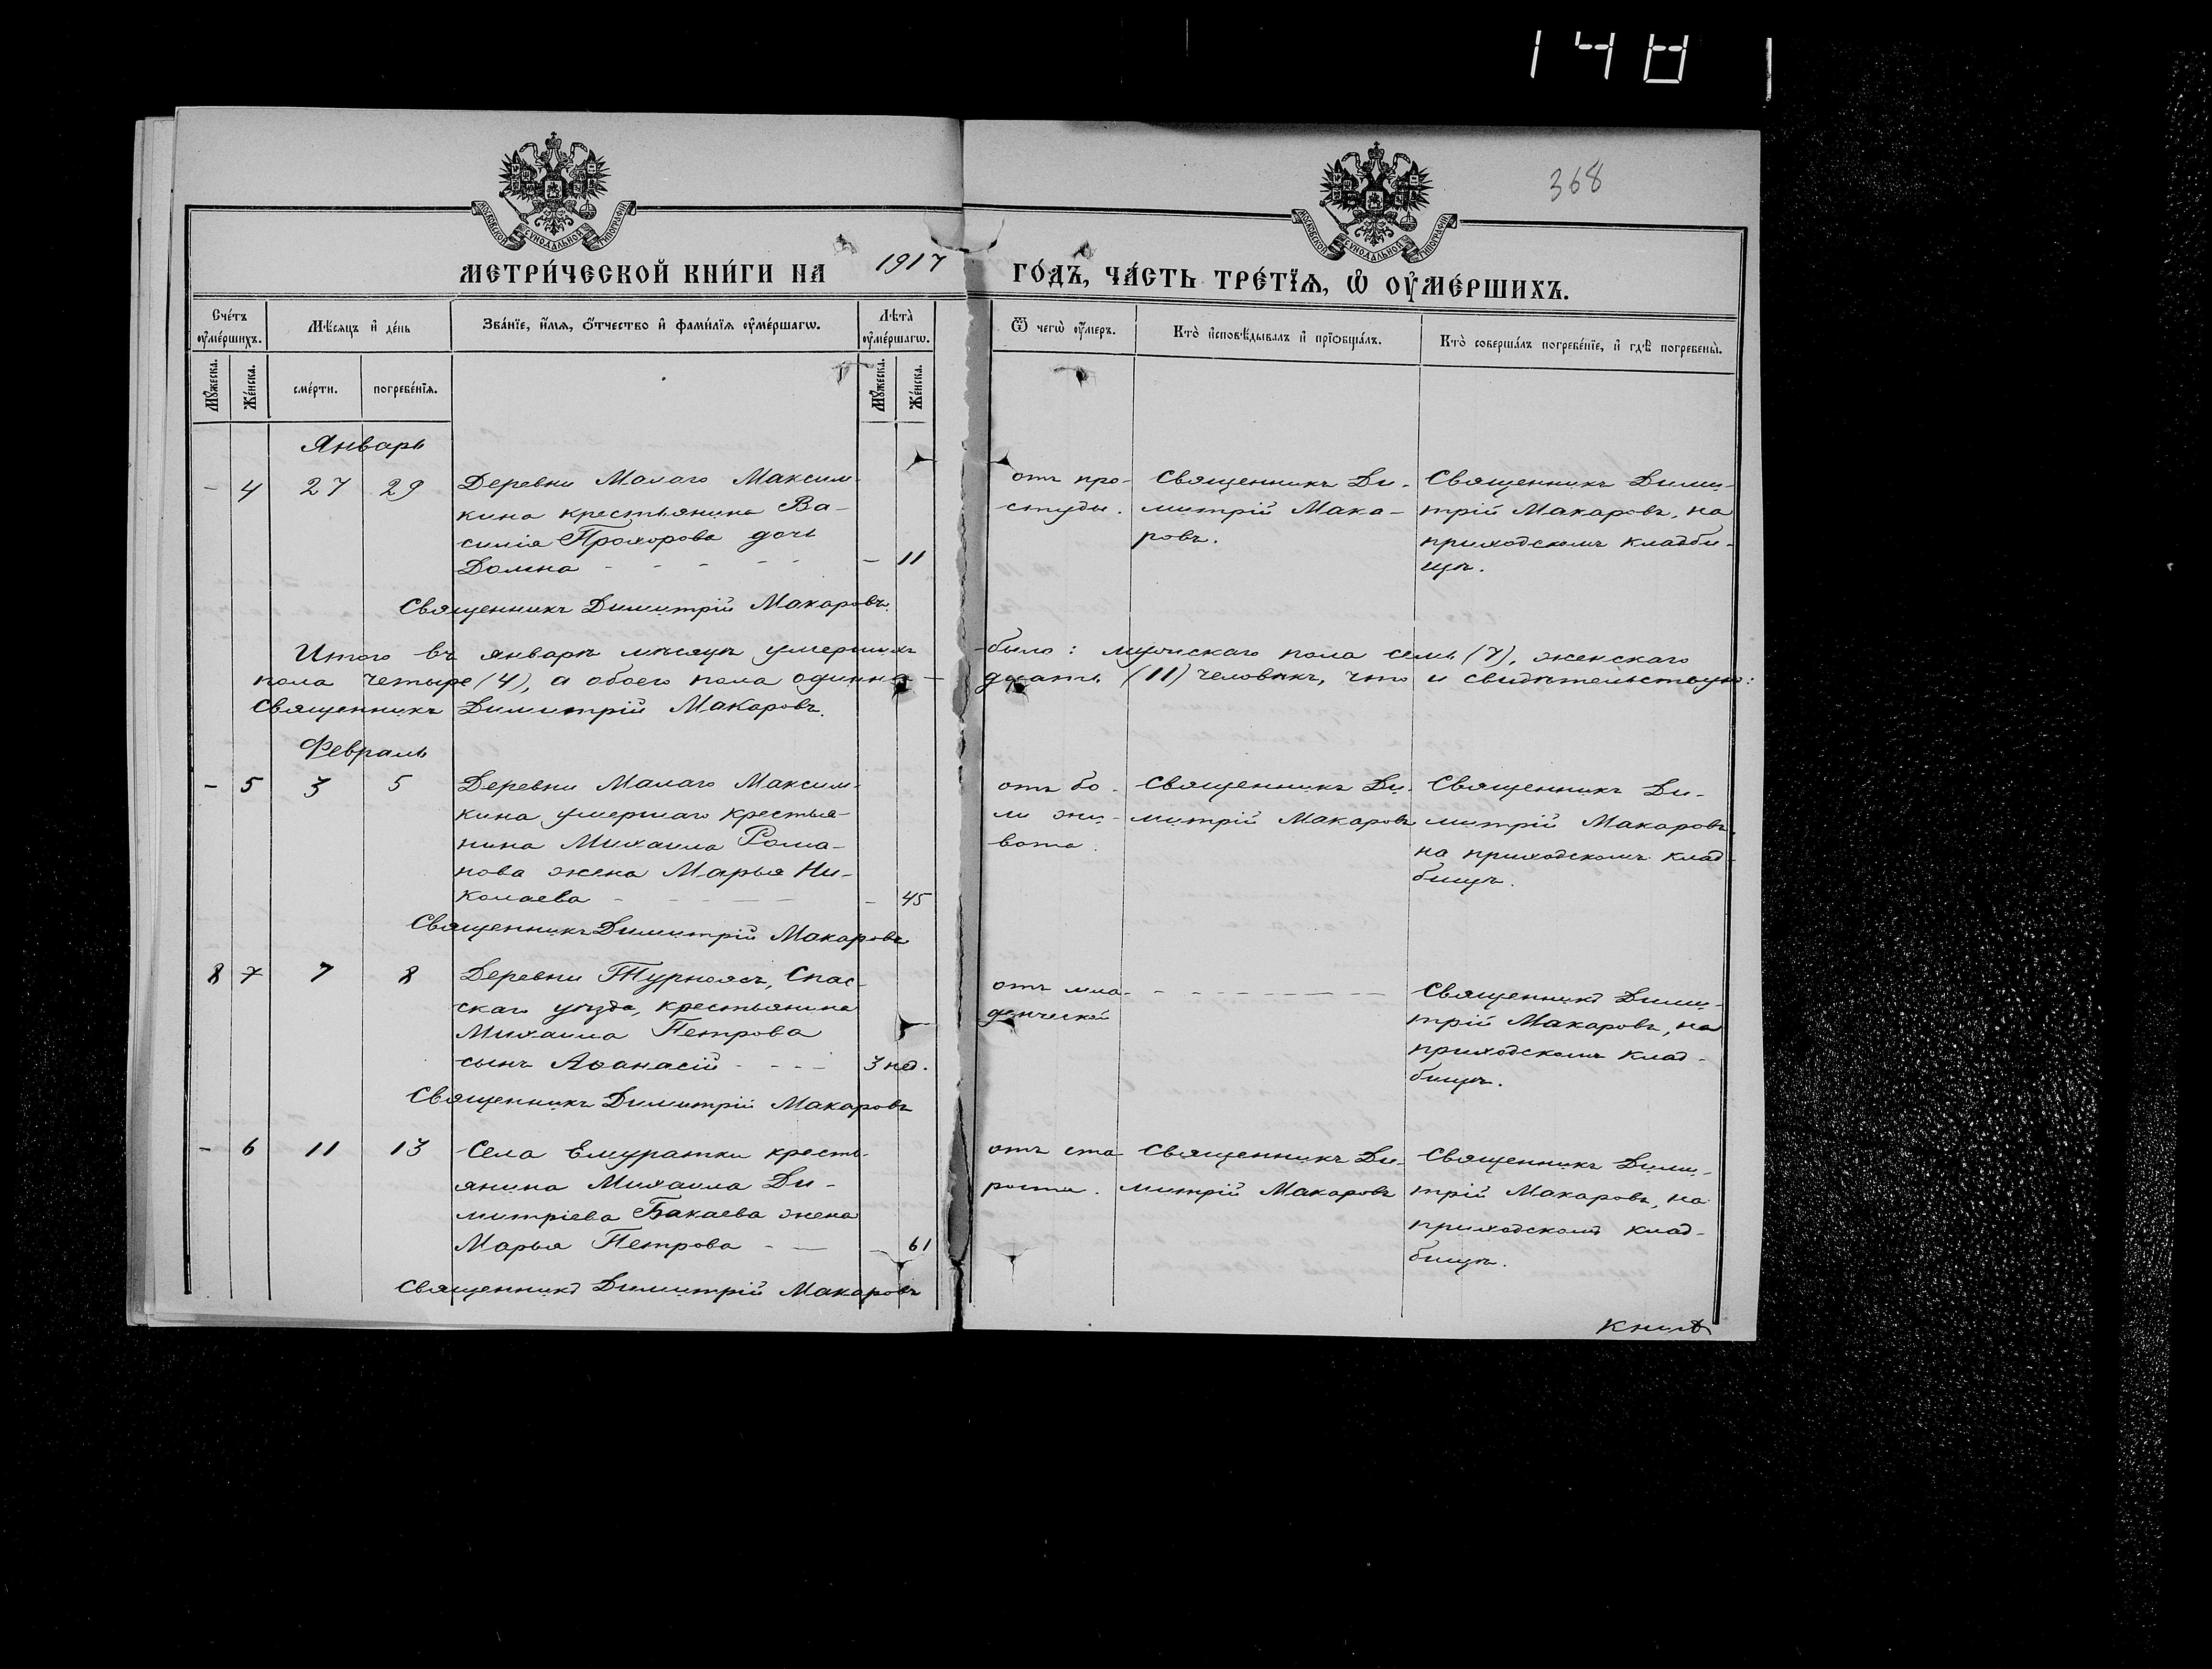 148
368
МОСКОВСКОЙ СУНОДАЛЬНОЙ ТИПОГРАФІИ
МОСКОВСКОЙ СУНОДАЛЬНОЙ ТИПОГРАФІИ
МЕТРИ́ЧЕСКОЙ КНИ́ГИ НА 1917 ГО́ДЪ, ЧА́СТЬ ТРЕ́ТЇѦ, Ѡ҆ ОУ҆МЕ́РШИХЪ.
Сче́тъ оу҆ме́ршихъ.
Мѣ́сяцъ и҆ де́нь
Зва́нїе, и҆́мѧ, ѻ҆́тчество и҆ фами́лїѧ оу҆ме́ршагѡ.
Лѣ́та оу҆ме́ршагѡ.
Ѿ чегѡ̀ оу҆́меръ.
Кто̀ и҆сповѣ́дывалъ и҆ прїѡбща́лъ.
Кто̀ соверша́лъ погребе́нїе, и҆ гдѣ̀ погребены̀.
Мꙋ́жеска.
Же́нска.
сме́рти.
погребе́нїѧ.
Мꙋ́жеска.
Же́нска.
Январь
- 4 27 29 Деревни Малаго Максим-
кина крестьянина Ва-
силія Прохорова дочь
Домна - - - - - - 11
отъ про-
студы.
Священникъ Ди-
митрій Мака-
ровъ.
Священникъ Дими-
трій Макаровъ, на
приходскомъ кладби-
щѣ.
Священникъ Димитрій Макаровъ.
Итого въ январѣ мѣсяцѣ умершихъ было: мужскаго пола семь (7), женскаго
пола четыре (4), а обоего пола одинна- дцать (11) человѣкъ, что и свидѣтельствую:
Священникъ Димитрій Макаровъ.
Февраль
- 5 3 5 Деревни Малаго Максим-
кина умершаго крестья-
нина Михаила Рома-
нова жена Марья Ни-
колаева - - - - - - 45
отъ бо-
ли жи-
вота.
Священникъ Ди-
митрій Макаровъ
Священникъ Ди-
митрій Макаровъ,
на приходскомъ клад-
бищѣ.
Священникъ Димитрій Макаровъ
8 7 7 8 Деревни Турнояс, Спас-
скаго уѣзда, крестьянина
Михаила Петрова
сынъ Аѳанасій - - - - 3 нед.
отъ мла-
денческой
Священникъ Дими-
трій Макаровъ, на
приходскомъ клад-
бищѣ.
Священникъ Димитрій Макаровъ
- 6 11 13 Села Емуратки кресть-
янина Михаила Ди-
митріева Бакаева жена
Марья Петрова - - - 61
отъ ста-
рости.
Священникъ Ди-
митрій Макаровъ
Священникъ Дими-
трій Макаровъ, на
приходскомъ клад-
бищѣ.
Священникъ Димитрій Макаровъ